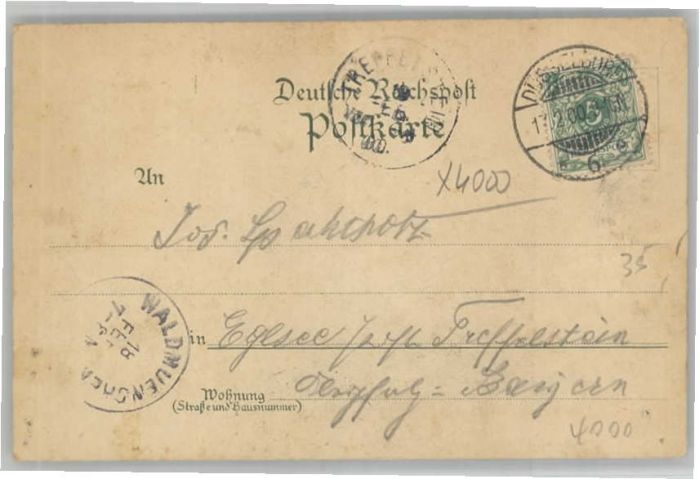 Deutsche Reichspost
Postkarte
TREFFELSTEIN
DÜSSELDORF
17.2.00
6
5
X4000
An
Jos. Spahlholz
35
WALDMUENCHEN
18
FEB
in Eglsee Post Treffelstein
Wohnung
(Straße und Hausnummer)
Oberpfalz = Bayern
4000